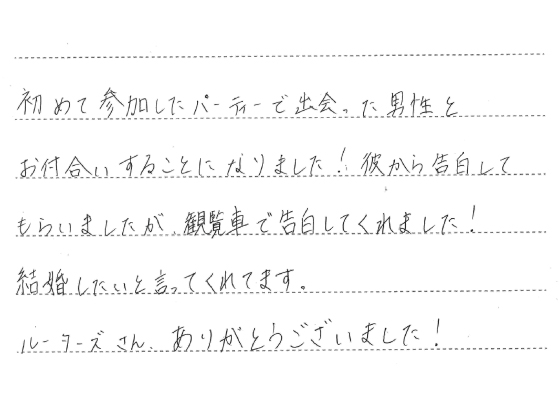 初めて参加したパーティーで出会った男性と
お付合いすることになりました！彼から告白して
もらいましたが、観覧車で告白してくれました！
結婚したいと言ってくれてます。
ルーターズさん、ありがとうございました！